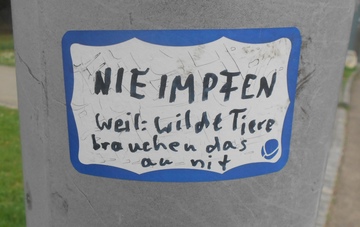 NIE IMPFEN
weil: wilde Tiere
brauchen das
au nit